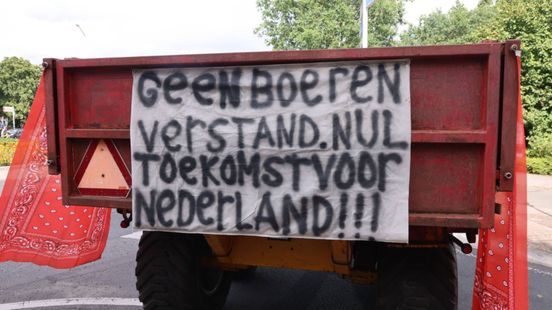 GEEN BOEREN
VERSTAND. NUL
TOEKOMST VOOR
NEDERLAND!!!